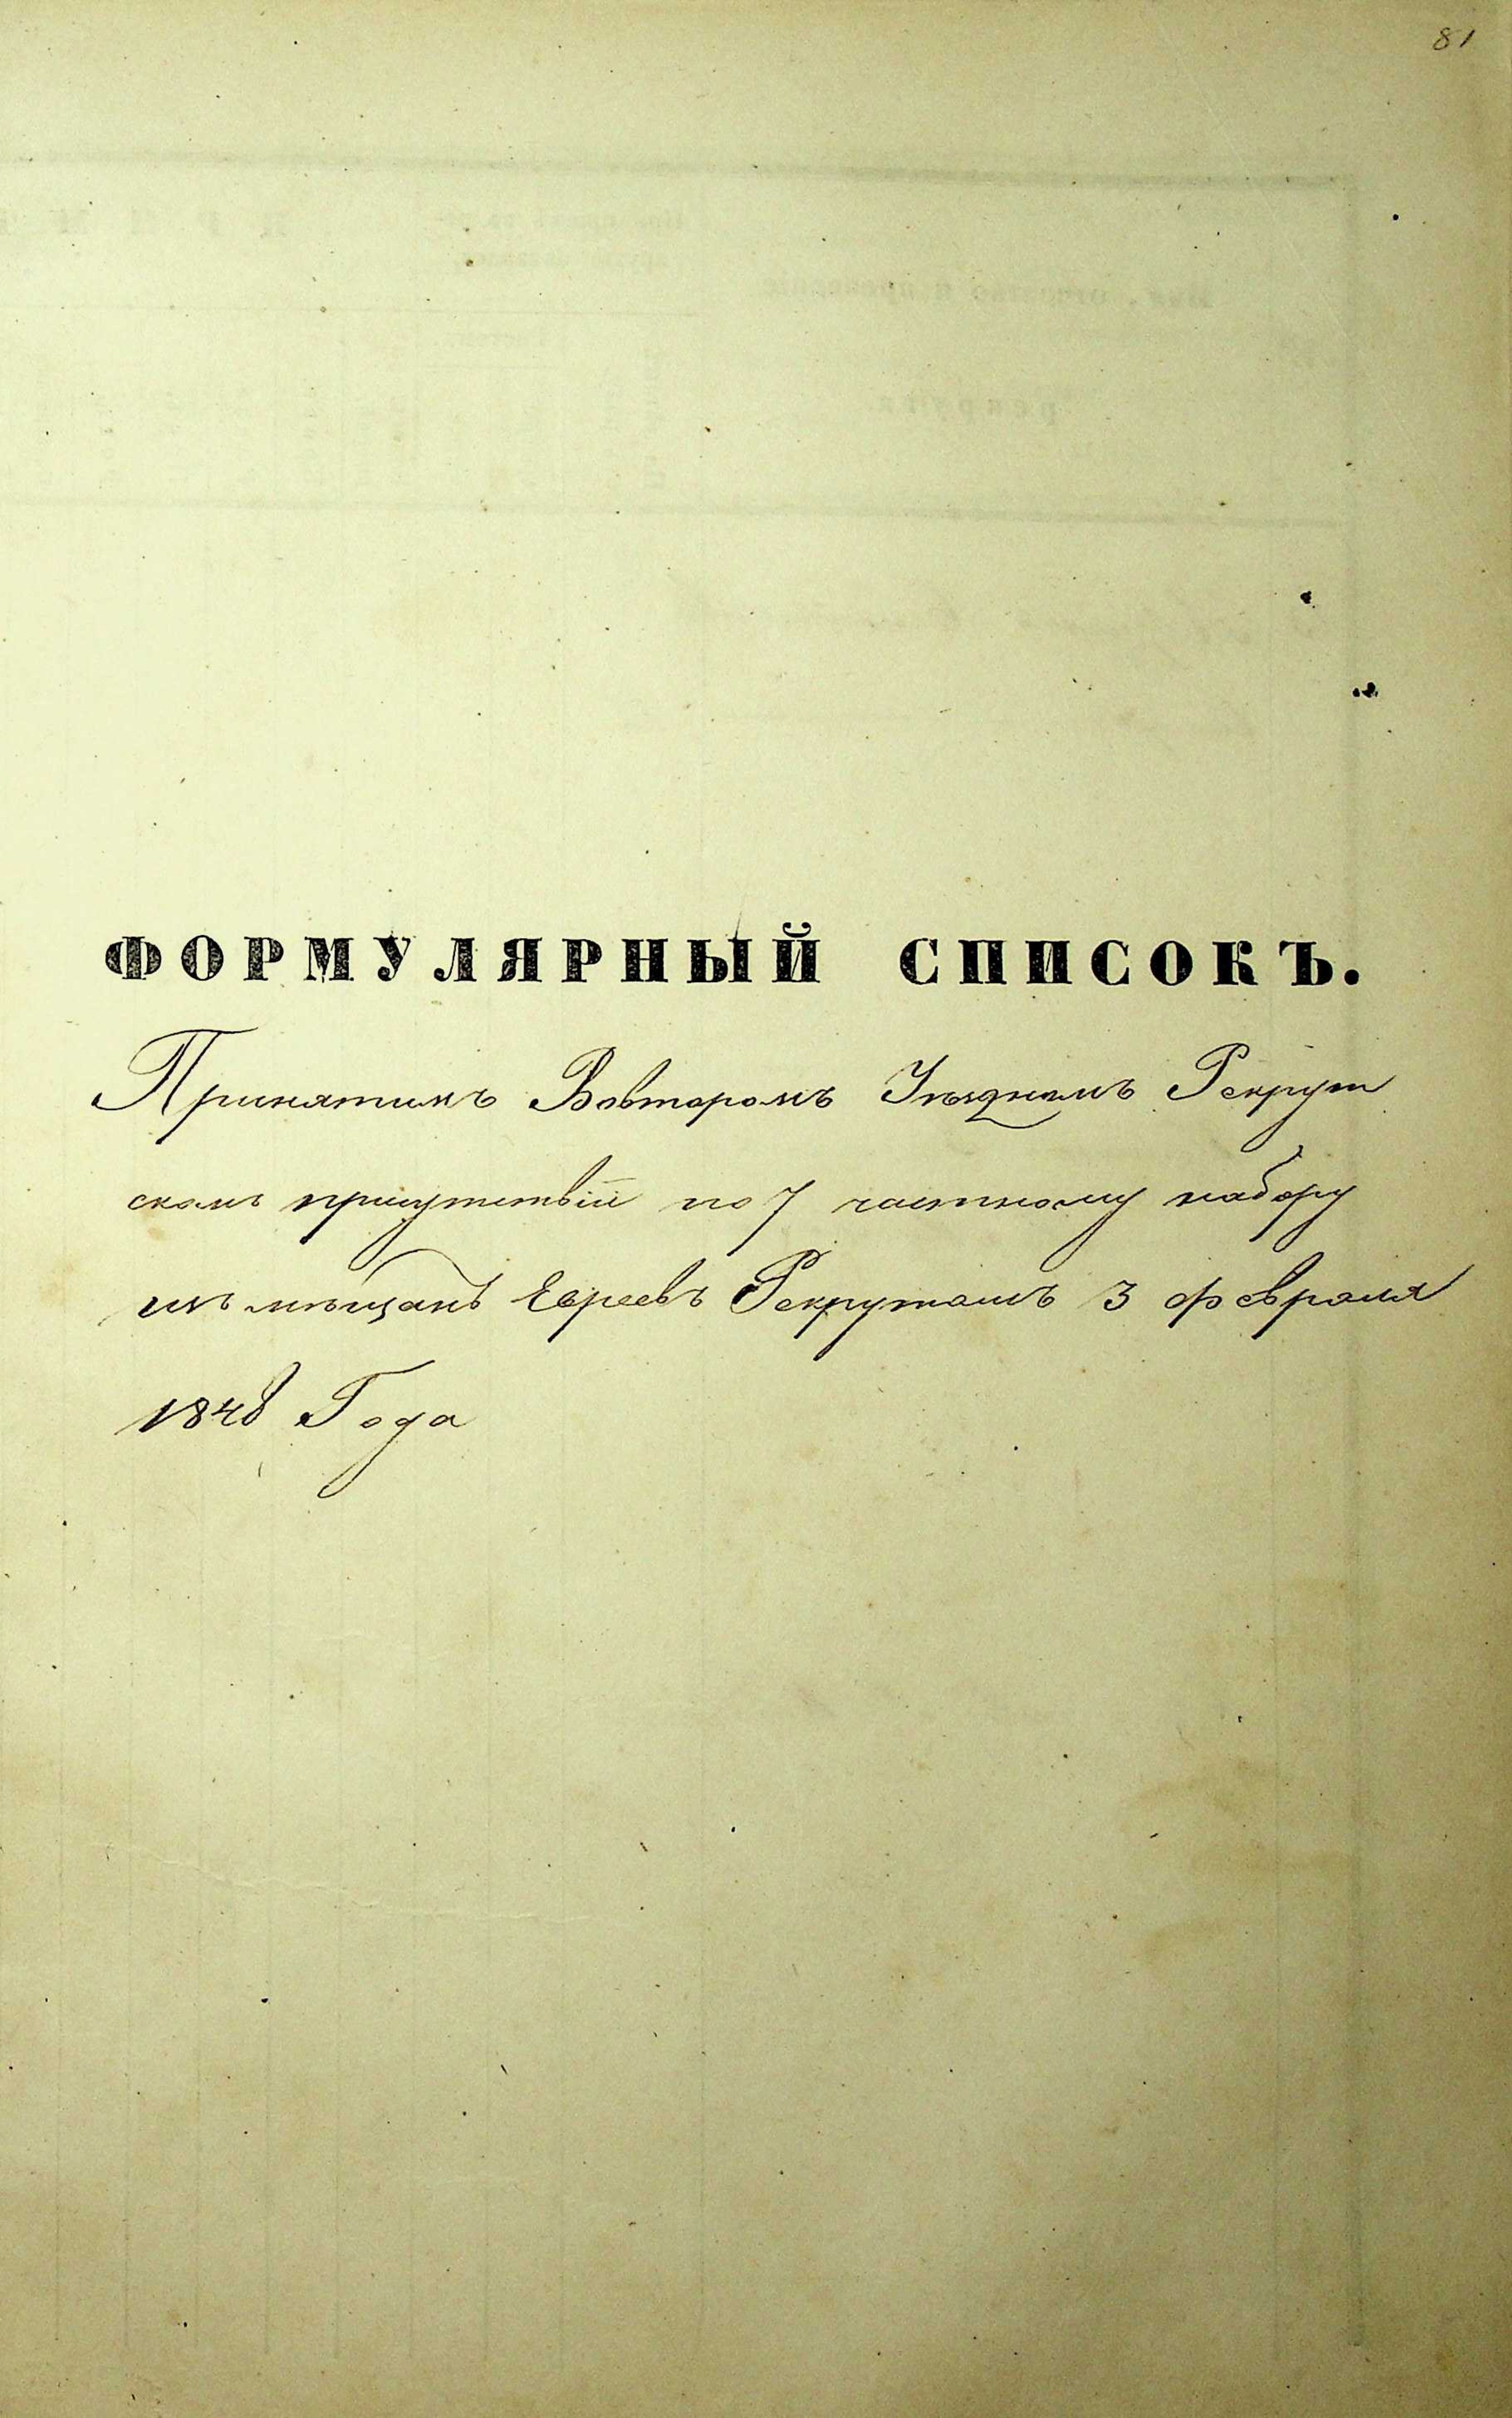 81
ФОРМУЛЯРНЫЙ СПИСОКЪ.
Принятымъ Вовторомъ Уѣздномъ Рекрут
скомъ присутствіи по 7 частному набору
изъ мѣщанъ Евреевъ Рекрутамъ 3 февраля
1848 Года